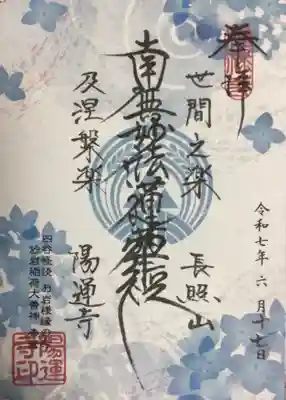 奉拝
令和七年 六月十七日
世間之楽
長照山
南無妙法蓮華経
及涅槃楽
陽運寺
四谷怪談 お岩様縁の寺
於岩稲荷大善神
陽運寺印